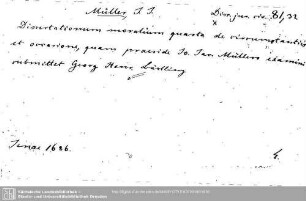 Müller, J. J. Diss. jur. civ. 81, 32
x
Dissertationum moralium quarta de circumstantiis
et occasione, quam praeside Jo. Jac. Müllero examini
submittet Georg Henr.
Jenae 1686. 4.
Sächsische Landesbibliothek -
Staats- und Universitätsbibliothek Dresden